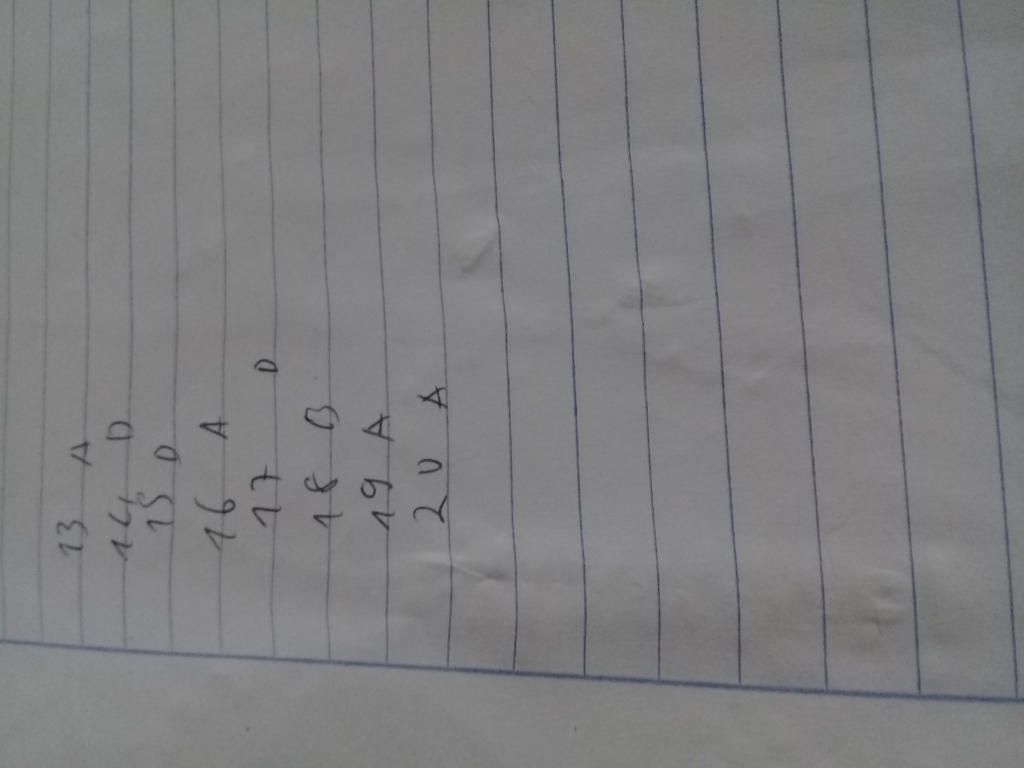 13 A
14 D
15 D
16 A
17 D
18 B
19 A
20 A